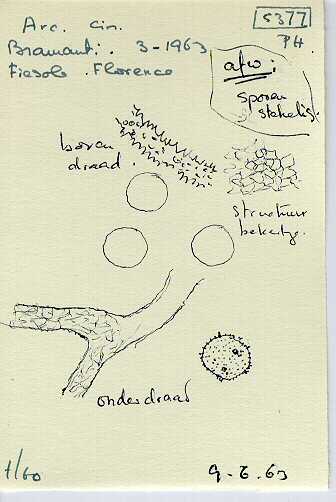 Arc. cin.
5377
Bramanti. 3-1963
PH.
Fiesole. Florence
afw:
sporen
stekelig.
boven
draad.
structuur
bekertje.
onderdraad
1/60
9-6.63